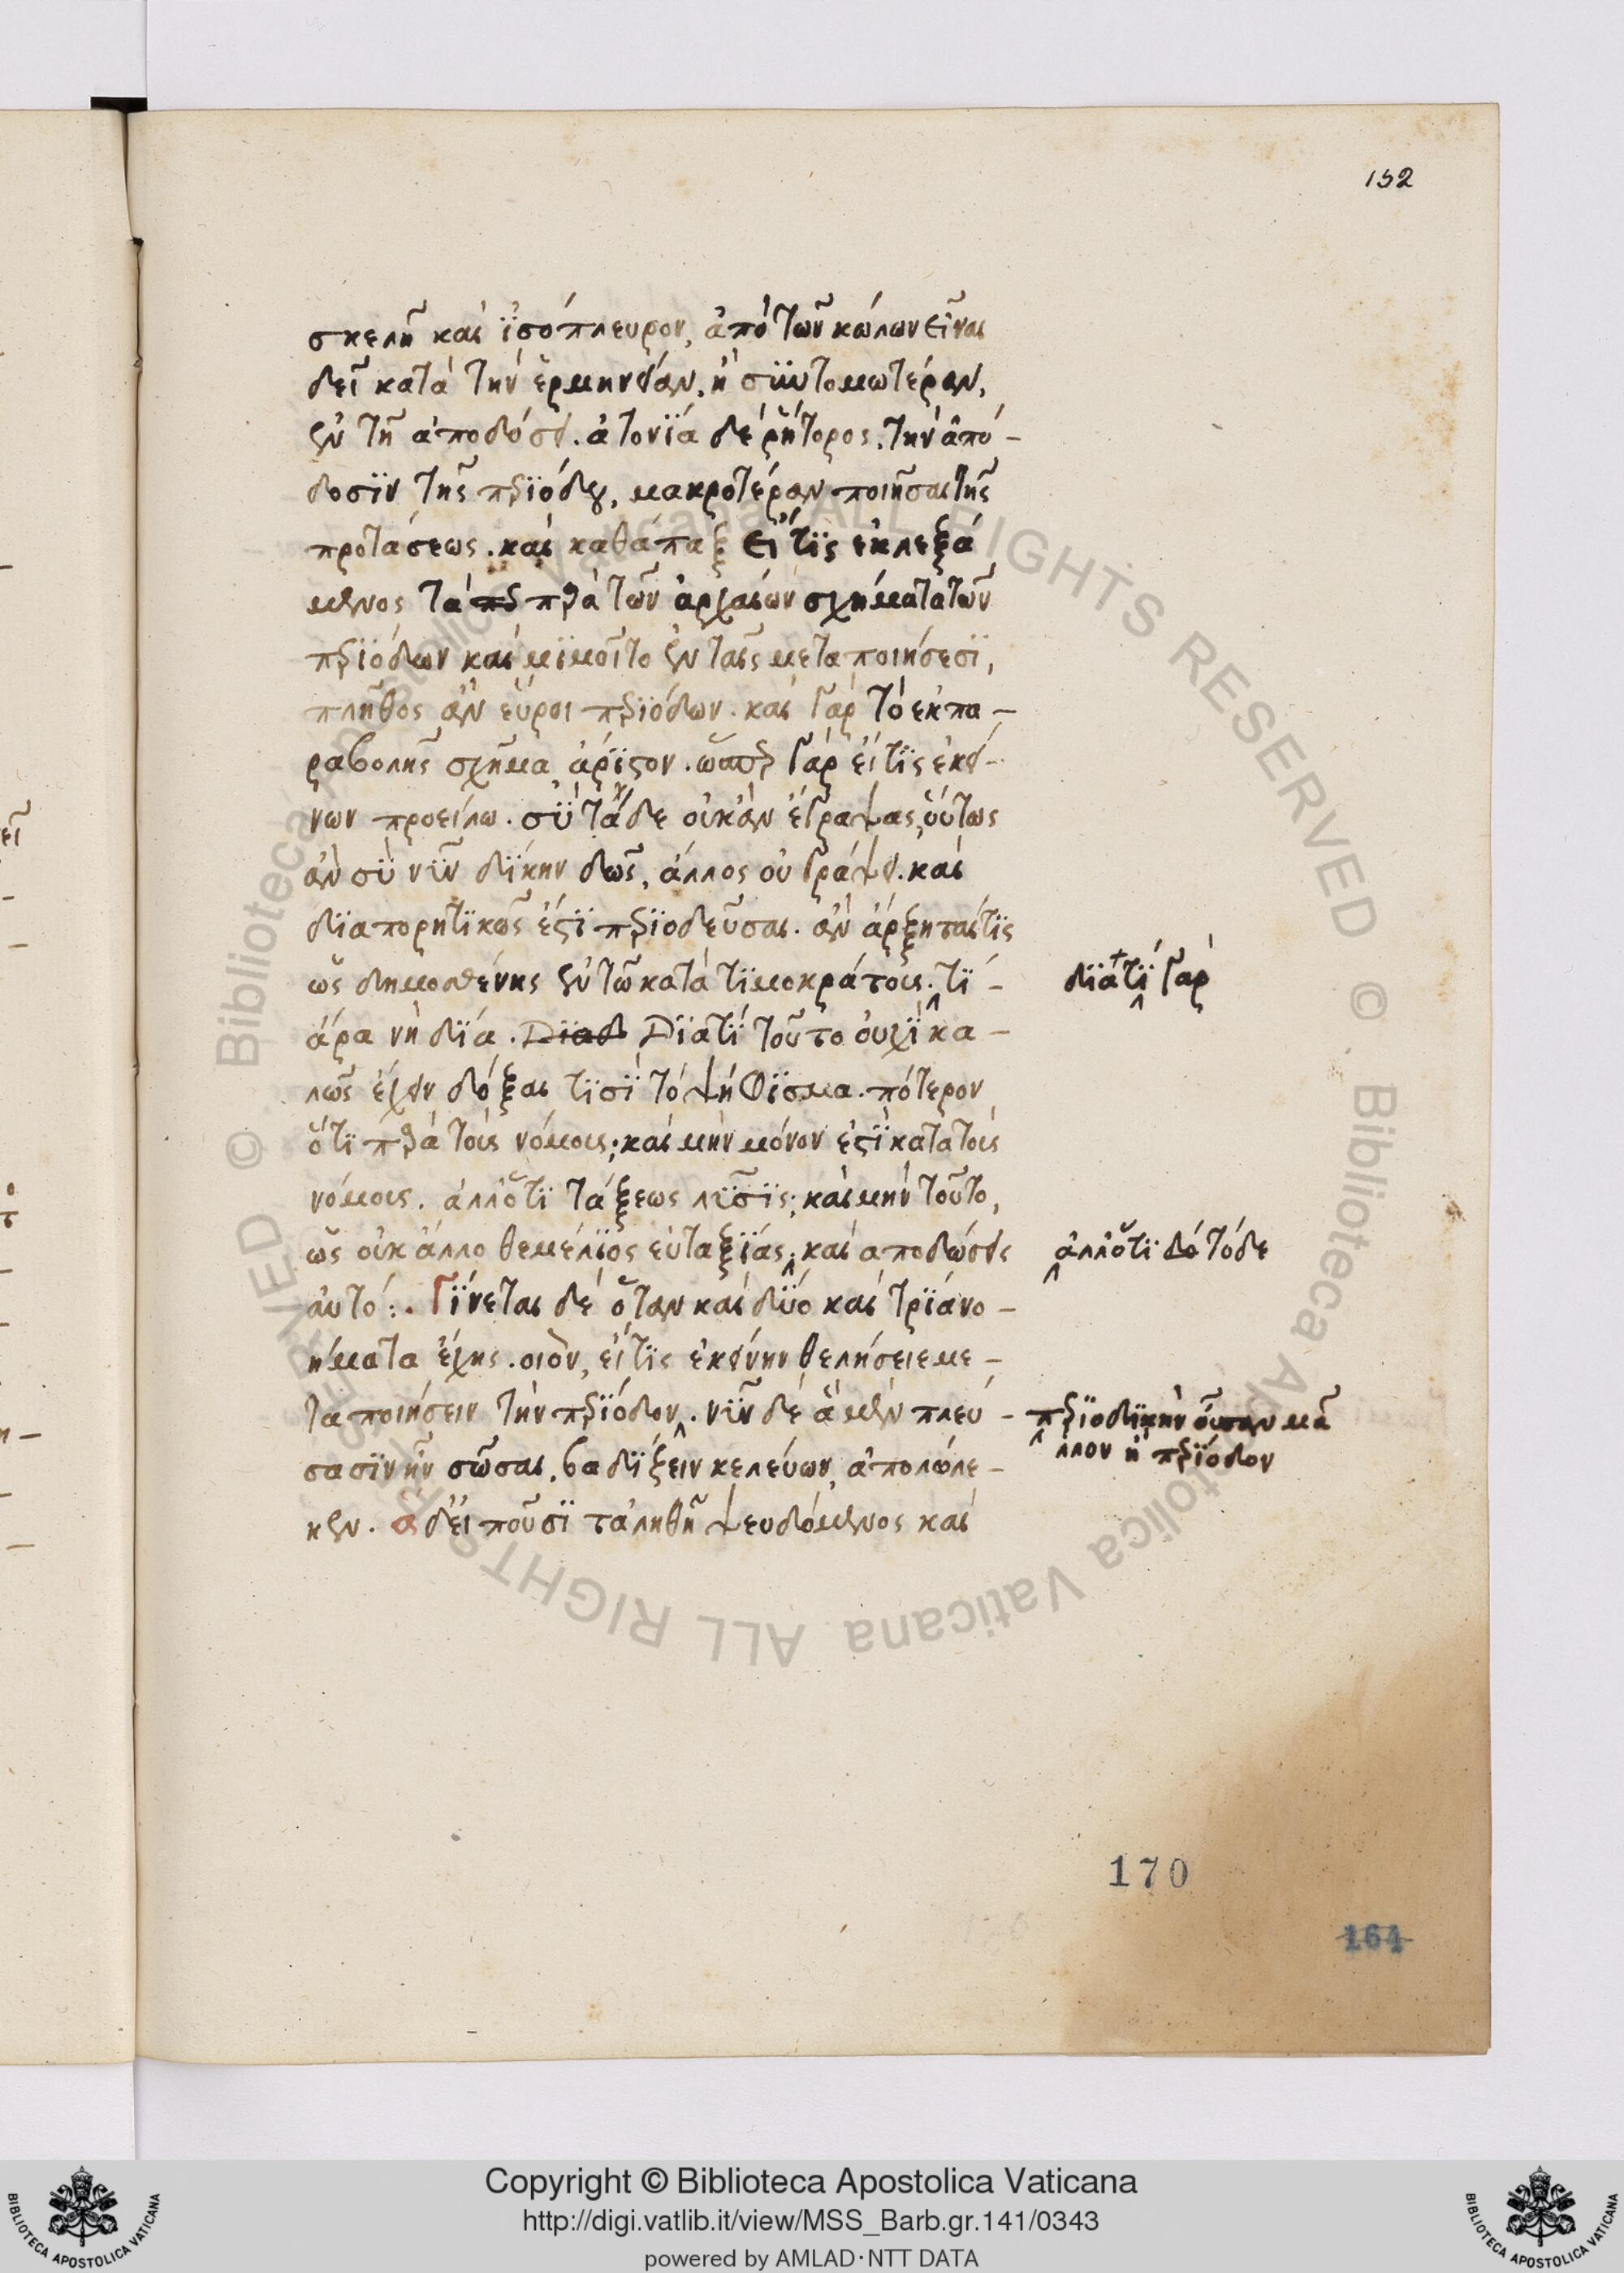 152
σκελῆ καὶ ἰσόπλευρον, ἀπὸ τῶν κώλων εἶναι
δεῖ κατὰ τὴν ἑρμηνείαν, ἢ συντομωτέραν,
ἐν τῇ ἀποδόσει. ἀτονία δὲ ῥήτορος, τὴν ἀπό-
δοσιν τῆς περιόδου, μακροτέραν ποιῆσαι τῆς
προτάσεως. καὶ καθάπαξ εἴ τις ἐκλεξά
μενος τὰ περ παρὰ τῶν ἀρχαίων σχήματα τῶν
περιόδων καὶ μιμοῖτο ἐν ταῖς μεταποιήσεσι,
πλῆθος ἂν εὕροι περιόδων. καὶ γὰρ τὸ ἐκ πα-
ραβολῆς σχῆμα ἄριστον. ὥσπερ γὰρ εἴ τις ἐκεί-
νων προείλω. σὺ τάδε οὐκ ἂν ἔγραψας, οὕτως
ἂν σὺ νῦν δίκην δῶς, ἄλλος οὐ γράψει. καὶ
διαπορητικῶς ἔστι περιοδεῦσαι. ἂν ἄρξηταί τις
ὡς δημοσθένης ἐν τῷ κατὰ τιμοκράτους. τί- διατί γὰρ
ἄρα νὴ δία. Διαδ Διατί τοῦτο οὐχὶ κα-
λῶς ἔχειν δόξαι τισὶ τὸ ψήφισμα. πότερον
ὅτι παρὰ τοὺς νόμους; καὶ μὴν μόνον ἐστὶ κατὰ τοὺς
νόμους. ἀλλ' ὅτι τάξεως λῦσις; καὶ μὴν τοῦτο,
ὡς οὐκ ἄλλο θεμέλιος εὐταξίας; καὶ ἀποδώσεις ἀλλ' ὅτι δὲ τόδε
αὐτό:. Γίνεται δὲ ὅταν καὶ δύο καὶ τρία νο-
ήματα ἔχης. οἷον, εἴ τις ἐκείνην θελήσειε με-
ταποιήσειν τὴν περίοδον. νῦν δὲ ἃ μὲν πλεύ- περιοδικὴν οὖσαν μᾶ
λλον ἢ περίοδον
σασιν ἦν σῶσαι, βαδίξειν κελεύων, ἀπολώλε-
κεν. ἃ δ' εἰποῦσι τἀληθῆ ψευδόμενος καὶ
170
164
Copyright © Biblioteca Apostolica Vaticana
http://digi.vatlib.it/view/MSS_Barb.gr.141/0343
powered by AMLAD·NTT DATA
BIBLIOTECA APOSTOLICA VATICANA
BIBLIOTECA APOSTOLICA VATICANA
© Biblioteca Apostolica Vaticana ALL RIGHTS RESERVED © Biblioteca Apostolica Vaticana ALL RIGHTS RESERVED